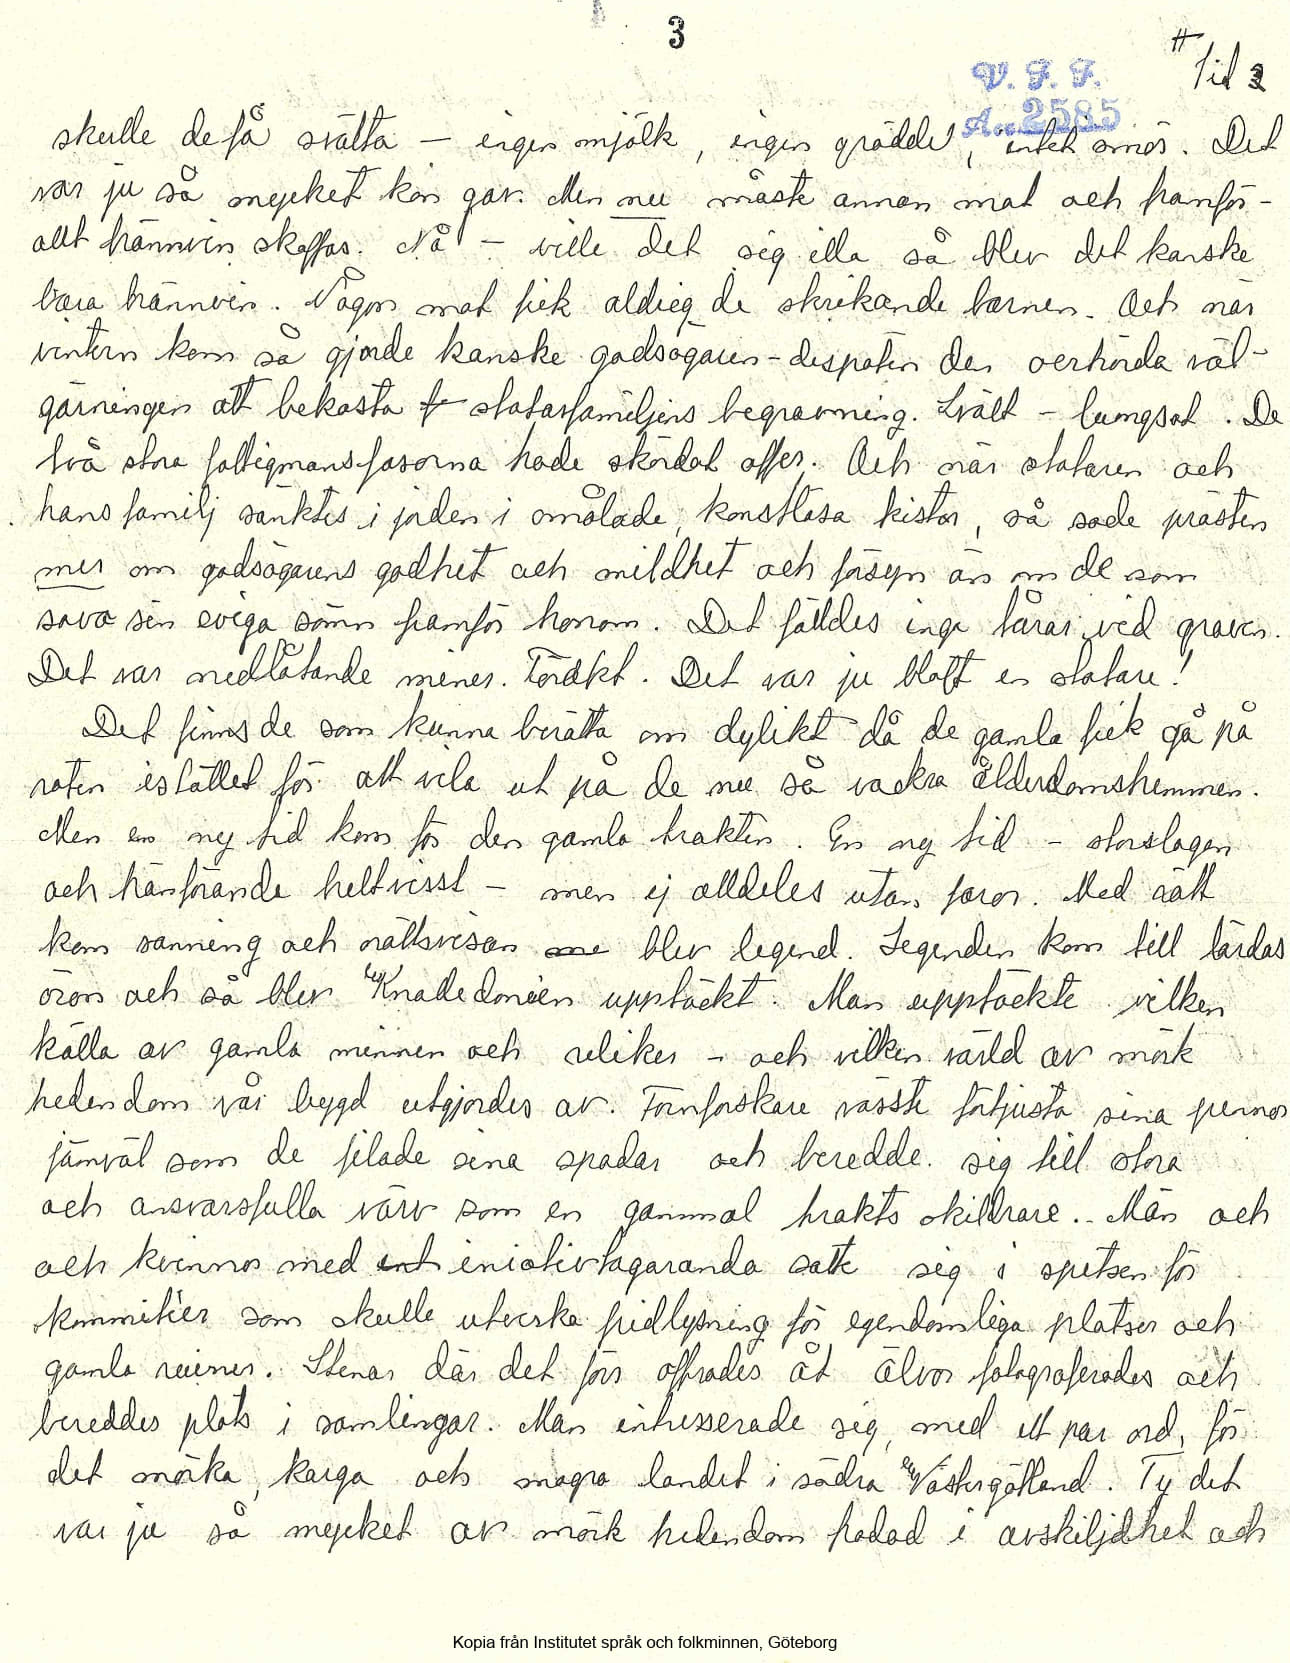 3
Sid 3
V. F. F.
Acc 2585
skulle de få svälta – ingen mjölk, ingen grädde, intet smör. Det
var ju så mycket kon gav. Men nu måste annan mat och framför-
allt brännvin skaffas. Nå – ville det sig illa så blev det kanske
bara brännvin. Någon mat fick aldrig de skrikande barnen. Och när
vintern kom så gjorde kanske godsägaren-despoten den oerhörda väl-
gärningen att bekosta statarfamiljens begravning. Svält – lungsot. De
två stora fattigmansfasorna hade skördat offer. Och när stataren och
hans familj sänktes i jorden i omålade, konstlösa kistor, så sade prästen
mer om godsägarens godhet och mildhet och försyn än om de som
sova sin eviga sömn framför honom. Det fälldes inga tårar vid graven.
Det var nedlåtande miner. Förakt. Det var ju blott en statare!
Det finns de som kunna berätta om dylikt då de gamla fick gå på
roten istället för att vila ut på de nu så vackra ålderdomshemmen.
Men en ny tid kom för den gamla trakten. En ny tid – storslagen
och hänförande helt visst – men ej alldeles utan faror. Med rätt
kom sanning och rättsvisan blev legend. Legenden kom till lärdas
öron och så blev "Knadedonien upptäckt. Man upptäckte vilken
källa av gamla minnen och reliker – och vilken värld av mörk
hedendom vår bygd utgjordes av. Fornforskare vässte förtjusta sina pennor
jämväl som de filade sina spadar och beredde sig till stora
och ansvarsfulla värv som en gammal trakts skildrare. Män och
och kvinnor med iniativtagaranda satte sig i spetsen för
kommitéer som skulle utverka fridlysning för egendomliga platser och
gamla ruiner. Stenar där det förr offrades åt älvor fotograferades och
bereddes plats i samlingar. Man intresserade sig, med ett par ord, för
det mörka, karga och magra landet i södra "Västergötland. Ty det
var ju så mycket av mörk hedendom fodad i avskildhet och
Kopia från Institutet språk och folkminnen, Göteborg